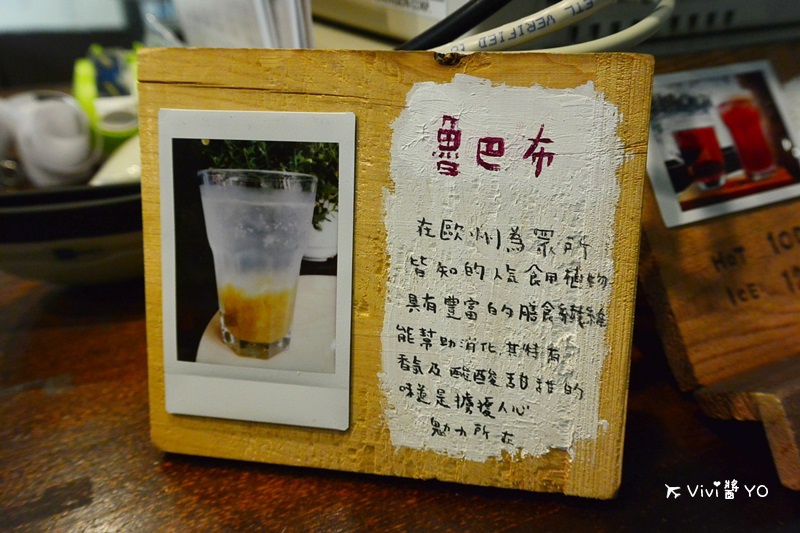 VERIFIED
魯巴布
在歐州為眾所
皆知的人氣食用植物
具有豐富的膳食纖維
能幫助消化,其特有
香氣及酸酸甜甜的
味道是擄獲人心
魅力所在
HOT 10
ICE
Vivi醬YO